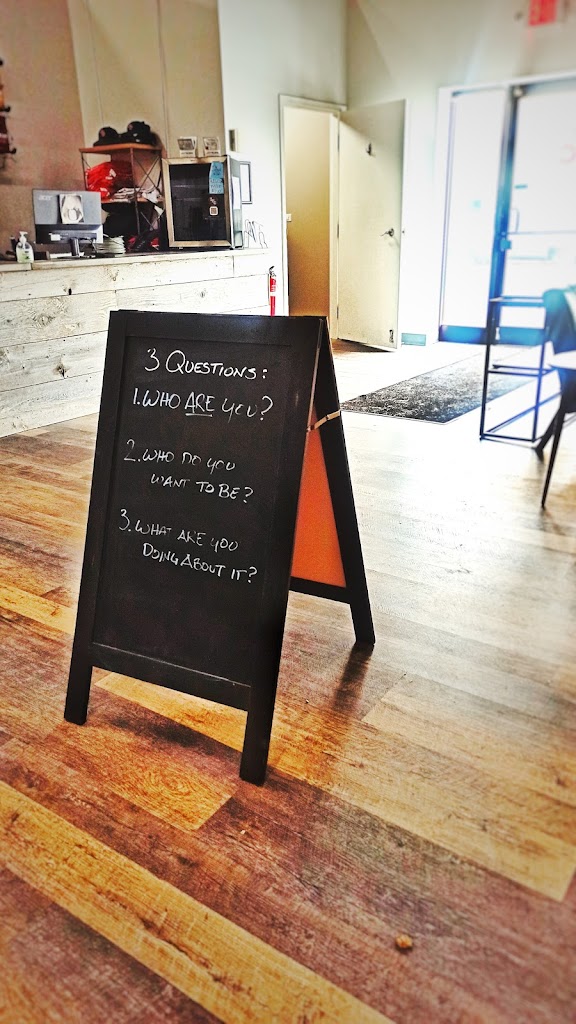 3 QUESTIONS:
1. WHO ARE YOU?
2. WHO DO YOU
WANT TO BE?
3. WHAT ARE YOU
DOING ABOUT IT?